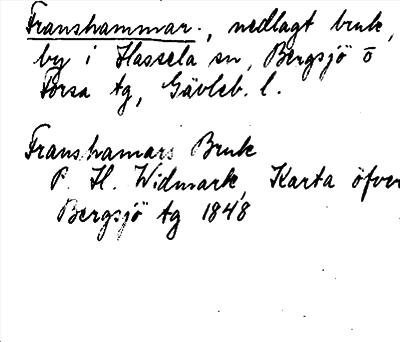 Franshammar., nedlagt bruk,
by i Hassela sn, Bergsjö o
Forsa tg, Gävleb. l.
Franshamars Bruk
P. H. Widmark, Karta öfver
Bergsjö tg 1848